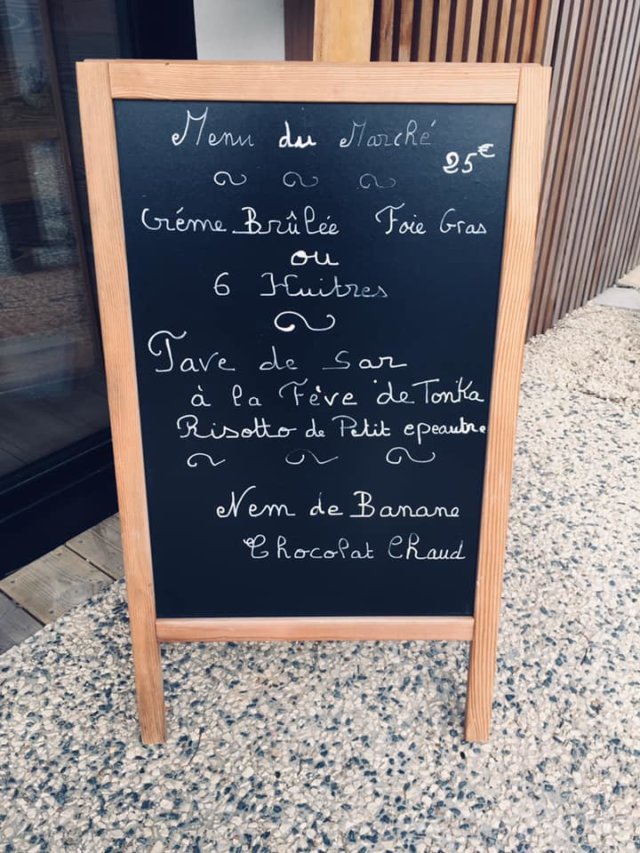 Menu du Marché
25€
Créme Brûlée Foie Gras
ou
6 Huitres
Pave de sar
à la Fève de Tonka
Risotto de Petit epeautre
Nem de Banane
Chocolat Chaud